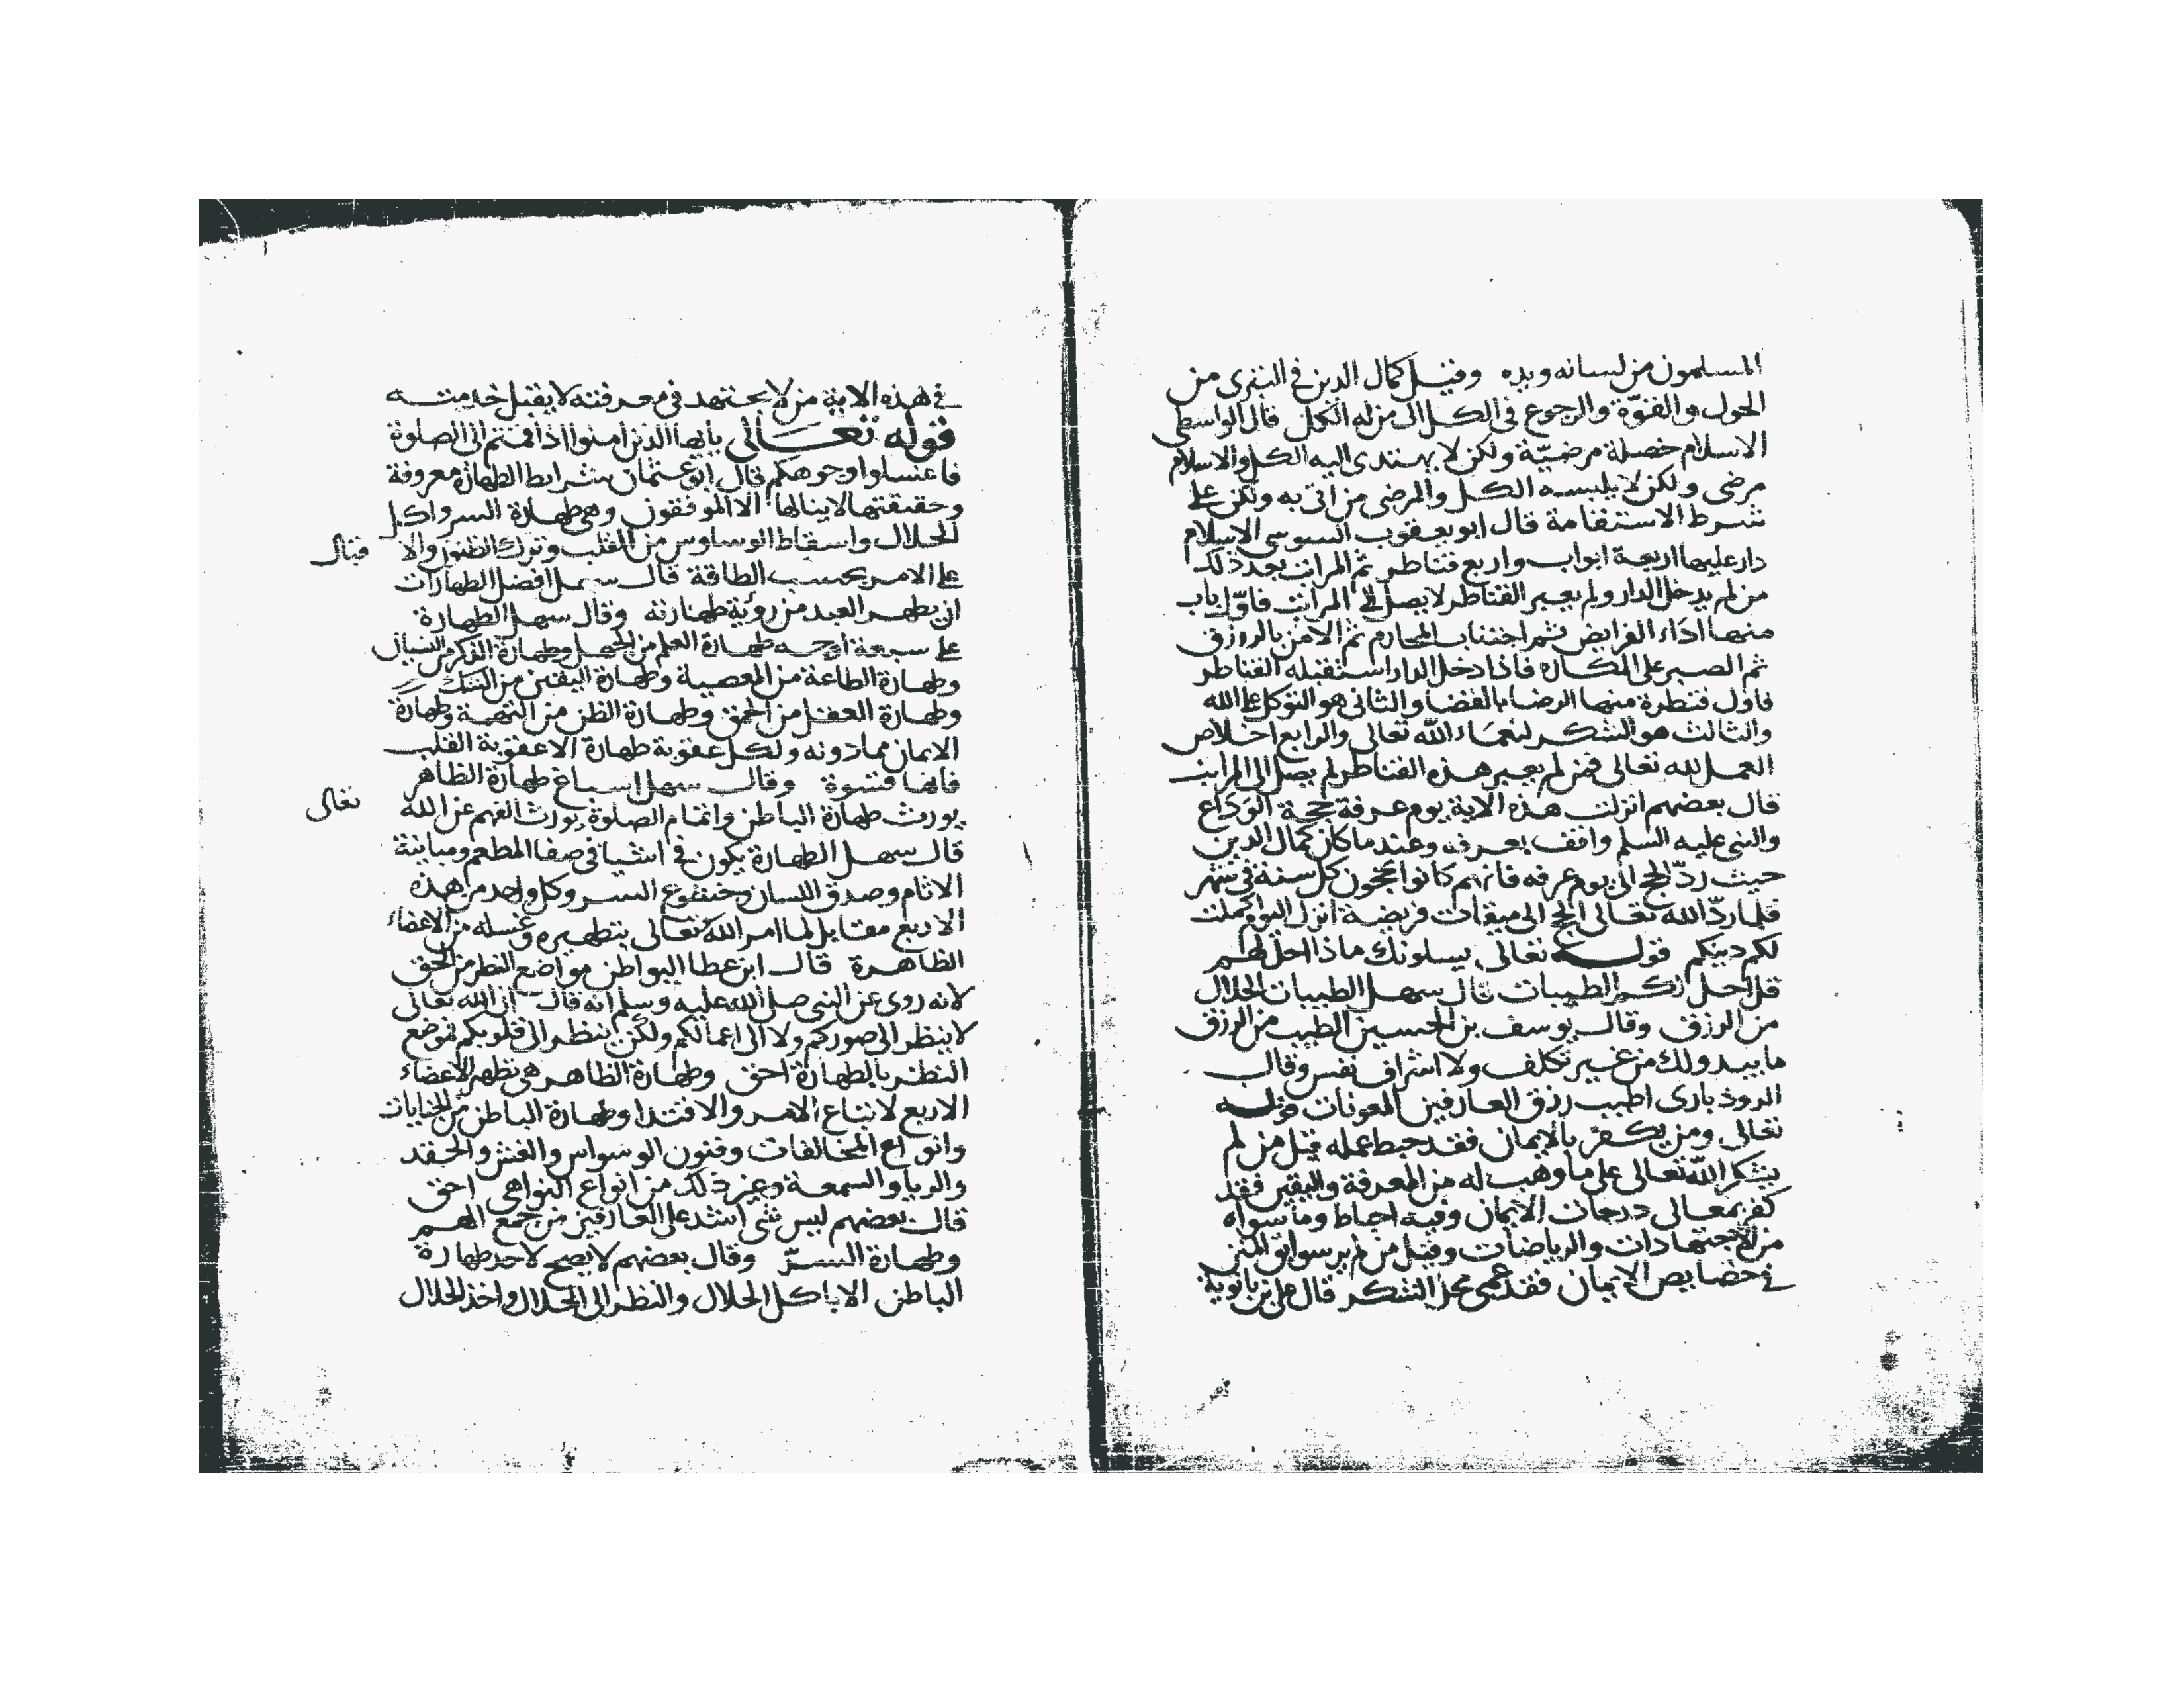 المسلمون من لسانه ويده وقيل كمال الدين في التبري من
الحول والقوّة والرجوع في الكل الى من له الكل قال الواسطي
الاسلام خصلة مرضيّة ولكن لا يهتدى اليه الكل والاسلام
مرضى ولكن لا يلبسه الكل والمرضى من اتى به ولكن على
شرط الاستقامة قال ابو يعقوب السوسى الاسلام
دار عليها اربعة ابواب واربع قناطر ثم المراتب بعد ذلك
من لم يدخل الدار ولم يعبر القناطر لا يصل الى المراتب فاوّل باب
منها اداء الفرايض ثم اجتناب المحارم ثم الامن بالرزق
ثم الصبر على المكاره فاذا دخل الدار استقبله القناطر
فاول قنطرة منها الرضا بالقضا والثانى هو التوكل على الله
والثالث هو الشكر لنعماء الله تعالى والرابع اخلاص
العمل لله تعالى فمن لم يعبر هذه القناطر لم يصل الى المراتب
قال بعضهم انزلت هذه الاية يوم عرفة حجة الوداع
والنبى عليه السلم واقف بعرفه وعند ما كان كمال الدين
حيث ردّ الحج الى يوم عرفه فانهم كانوا يحجون كل سنة في شهر
فلما ردّ الله تعالى الحج الى ميقات فريضة انزل اليوم اكملت
لكم دينكم قوله تعالى يسلونك ماذا احل لهم
قل احل لكم الطيبات قال سهل الطيبات الحلال
من الرزق وقال يوسف بن الحسين الطيب من الرزق
ما يبدو لك من غير تكلف ولا اشراف نفس وقال
الروذبارى اطيب رزق العارفين المعونات قوله
تعالى ومن يكفر بالايمان فقد حبط عمله قيل من لم
يشكر الله تعالى على ما وهب له من المعرفة واليقين فقد
كفر بمعالى درجات الايمان وفيه احباط وما سواه
من الاجتهادات والرياضات وقيل من لم ير سوابق المنن
في خصايص الايمان فقد عمى محل الشكر قال على بن بانويه
في هذه الاية من لا يجتهد في معرفته لا يقبل خدمته
قوله تعالى يايها الذين امنوا اذا قمتم الى الصلوة
فاغسلوا وجوهكم قال ابو عثمان شرايط الطهارة معروفة
وحقيقتها لا ينالها الا الموفقون وهي طهارة السر واكل
الحلال واسقاط الوساوس من القلب وترك الظنون والا قبال
على الامر بحسب الطاقة قال سهل افضل الطهارات
ان يطهر العبد من روية طهارته وقال سهل الطهارة
على سبعة اوجه طهارة العلم من الجهل وطهارة الذكر من النسيان
وطهارة الطاعة من المعصية وطهارة اليقين من الشك
وطهارة العقل من الحمق وطهارة الظن من التهمة وطهارة
الايمان مما دونه ولكل عقوبة طهارة الا عقوبة القلب
فانها قسوة وقال سهل اسباغ طهارة الظاهر
يورث طهارة الباطن واتمام الصلوة يورث الفهم عن الله تعالى
قال سهل الطهارة يكون في اشيا في صفا المطعم ومباينة
الاثام وصدق اللسان وخشوع السر وكل واحد من هذه
الاربع مقابل لما امر الله تعالى بتطهيره وغسله من الاعضاء
الظاهرة قال ابن عطا البواطن مواضع النظر من الحق
لانه روى عن النبى صلى الله عليه وسلم انه قال ان الله تعالى
لا ينظر الى صوركم ولا الى اعمالكم ولكن ينظر الى قلوبكم فموضع
النظر بالطهارة احق وطهارة الظاهر هى تطهير الاعضاء
الاربع لاتباع الامر والاقتدا وطهارة الباطن من الجنايات
وانواع المخالفات وفنون الوسواس والغش والحقد
والريا والسمعة وغير ذلك من انواع النواهى احق
قال بعضهم ليس شى اشد على العارفين من جمع الهم
وطهارة السرّ وقال بعضهم لا يصح لاحد طهارة
الباطن الا باكل الحلال والنظر الى الحلال واخذ الحلال